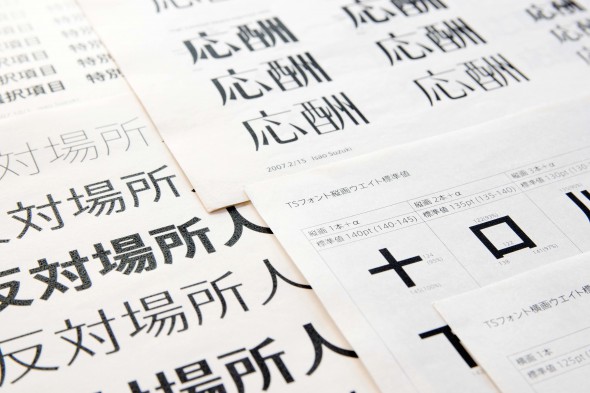 項目 特別
選択項目 特別
選択項目 特別
応酬
応酬
応酬
応酬
応酬
応酬
応酬
2007.2/15 Isao Suzuki
対場所
対場所
反対場所人
反対場所人
対場所人
TSフォント縦画ウエイト標準値
縦画 1本+α 縦画 2本+α 縦画 3本+α
標準値 140pt (140-145) 標準値 135pt (135-140) 標準値 130pt
十 口
TSフォント横画ウエイト標準
横画 1本
標準値 125pt